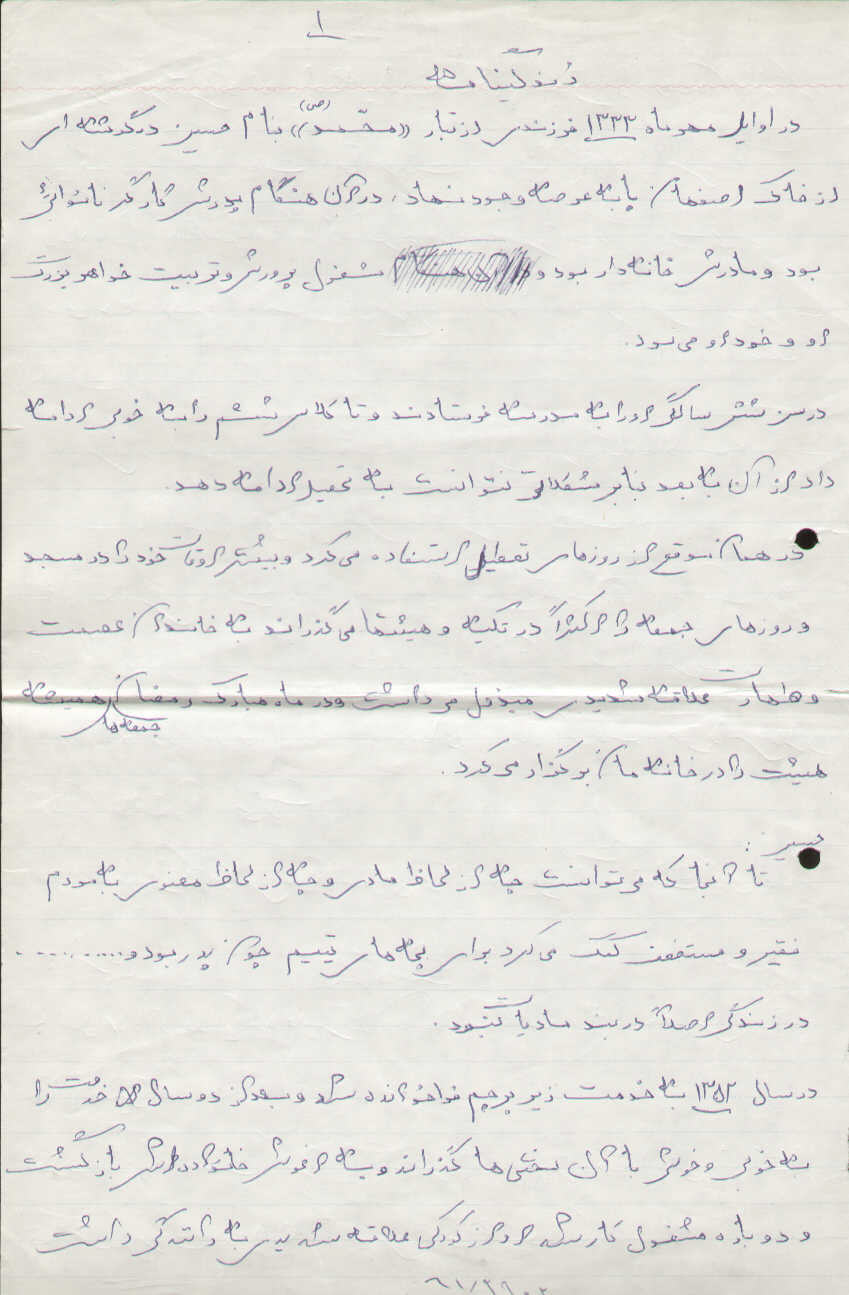 ۱
زندگینامه
در اوایل مهرماه ۱۳۳۳ فرزندی از تبار «محمّد(ص)» بنام حسین درگوشه ای
از خاک اصفهان پا به عرصه وجود نهاد، در آن هنگام پدرش کارگر نانوائی
بود و مادرش خانه دار بود و مشغول پرورش و تربیت خواهر بزرگ
او و خود او می بود.
در سن شش سالگی او را به مدرسه فرستادند و تا کلاس ششم را به خوبی ادامه
داد از آن به بعد بنابر مشکلاتی نتوانست به تحصیل ادامه دهد.
در همان موقع از روزهای تعطیل استفاده می کرد و بیشتر اوقات خود را در مسجد
و روزهای جمعه را اکثراً در تکیه و هیئتها می گذراند به خاندان عصمت
و طهارت علاقه شدیدی مبذول می داشت و در ماه مبارک رمضان همیشه
جمعه ها
هیئت را در خانه مان برگزار می کرد.
حسین:
تا آنجا که می توانست چه از لحاظ مادی و چه از لحاظ معنوی به مردم
فقیر و مستضعف کمک می کرد برای بچه های یتیم چون پدر بود و..........
در زندگی اصلاً در بند مادیات نبود.
در سال ۱۳۵۲ به خدمت زیر پرچم فراخوانده شد و بعد از دو سال خدمت را
به خوبی و خوشی با آن سختی ها گذراند و به آغوش خانواده اش بازگشت
و دوباره مشغول کار شد او از کودکی علاقه شدیدی به رانندگی داشت